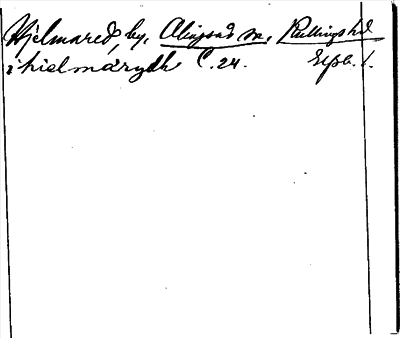 Hjelmared, by, Alingsås sn, Kullings hd
i hielmärydh C. 24.